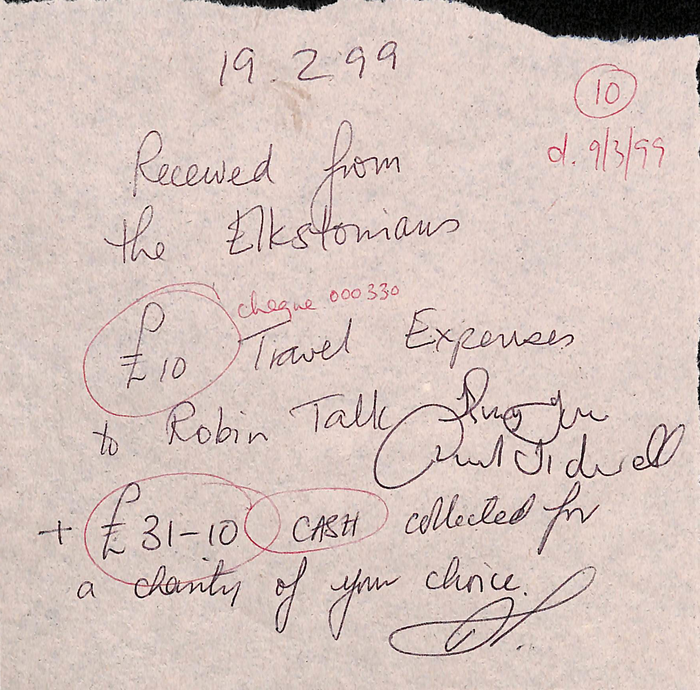 19.2 99
10
d. 9/3/99
Received from
the Elkstonians
cheque 000330
£10 Travel Expenses
to Robin Talk
+ £31-10 CASH collected for
a charity of your choice.